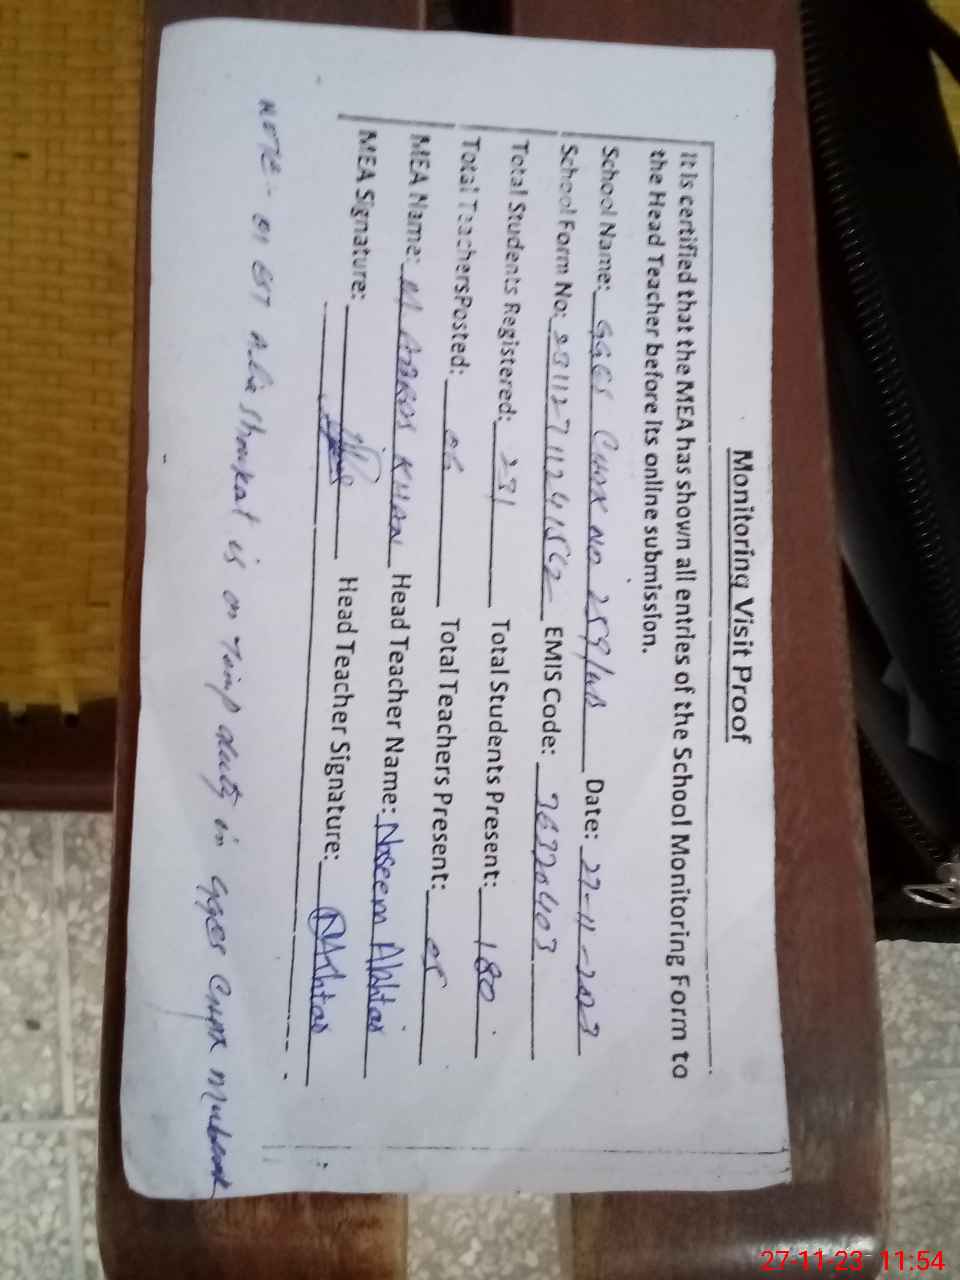 Monitoring Visit Proof
It is certified that the MEA has shown all entries of the School Monitoring Form to
the Head Teacher before its online submission.
School Name: GGES Chak No 259/WB Date: 27-11-2023
School Form No: EMIS Code: 76320403
Total Students Registered: 231 Total Students Present: 180
Total TeachersPosted: 06 Total Teachers Present: 05
MEA Name: M Abbas Khan Head Teacher Name: Naseem Akhtar
MEA Signature: Head Teacher Signature: NAkhtar
NOTE - EST shoukat is on Temp duty in GGES Chak
27-11-23 11:54